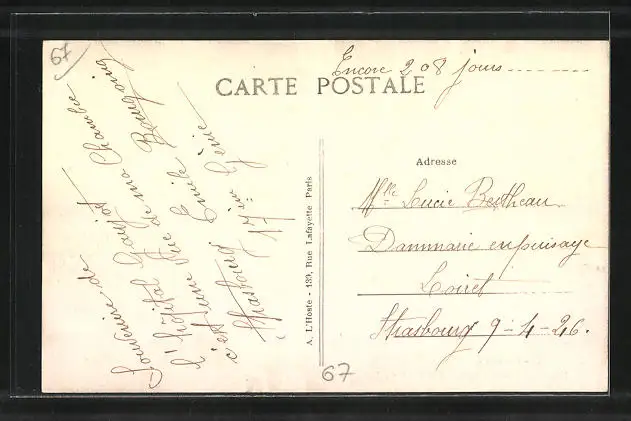 67
Encore 208 jours
CARTE POSTALE
Souvenir de
l'hôpital Gaujot
c'est une Vue de ma Chambre
Emile Bourgoing
Strasbourg 17ième Génie
A. L'Hoste - 139, Rue Lafayette Paris
Adresse
Mlle Lucie Bertheau
Dammarie en puisaye
Loiret
Strasbourg 9-4-26.
67